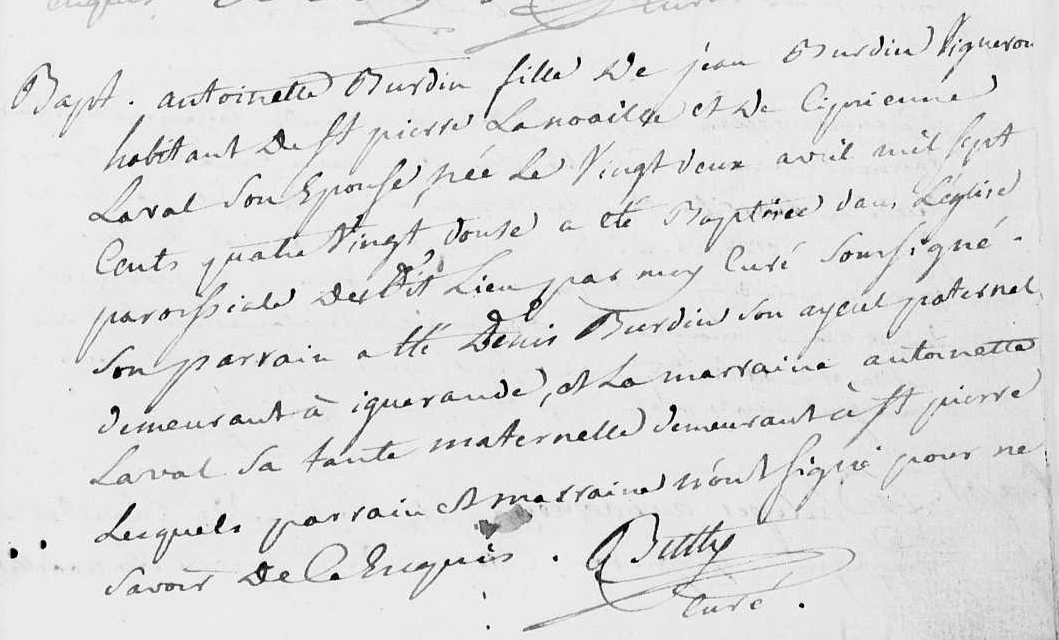 enquis Curé
Bapt. antoinette Burdin fille De jéan Burdin Vigneron
habitant De St pierre Lanoaille et De Ciprienne
Laval Son Epouse, née Le Vingt deux avril mil sept
Cents quatre Vingt douse a eté Baptisée dans L'église
paroissiale Dudit Lieu, par moy Curé Soussigné.
Son parrain a eté Denis Burdin son ayeul paternel
demeurant à iguerande, et La marraine antoinette
Laval Sa tante maternelle demeurant à St pierre
Lesquels parrain et marraine n'ont signé pour ne
savoir De Ce Enquis.
Curé.